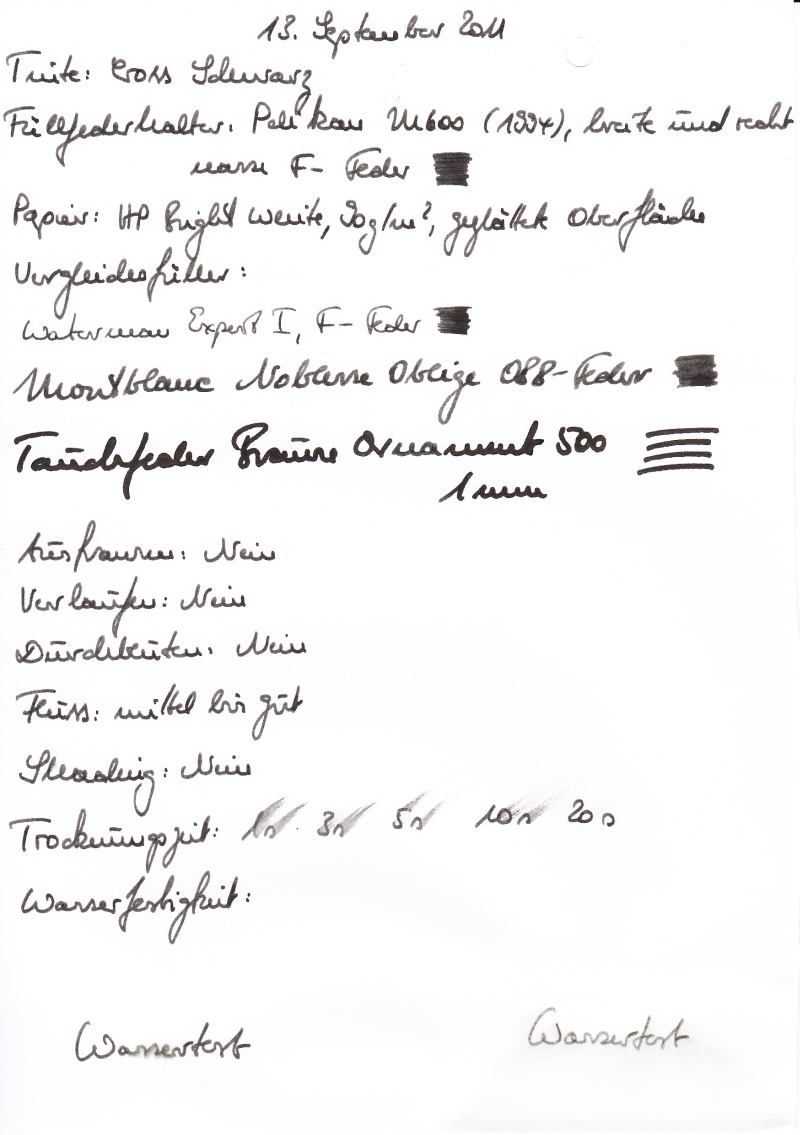 13. September 2011
Tinte: Cross Schwarz
Füllfederhalter: Pelikan M600 (1994), breite und recht
nasse F- Feder
Papier: HP Bright White, 90g/m², geglättete Oberfläche
Vergleichsfüller:
Waterman Expert I, F- Feder
Montblanc Noblesse Oblige OBB-Feder
Tauchfeder Brause Ornament 500
1 mm
Ausfransen: Nein
Verlaufen: Nein
Durchbluten: Nein
Fluss: mittel bis gut
Shading: Nein
Trocknungszeit: 1s 3s 5s 10s 20s
Wasserfestigkeit:
Wassertest Wassertest